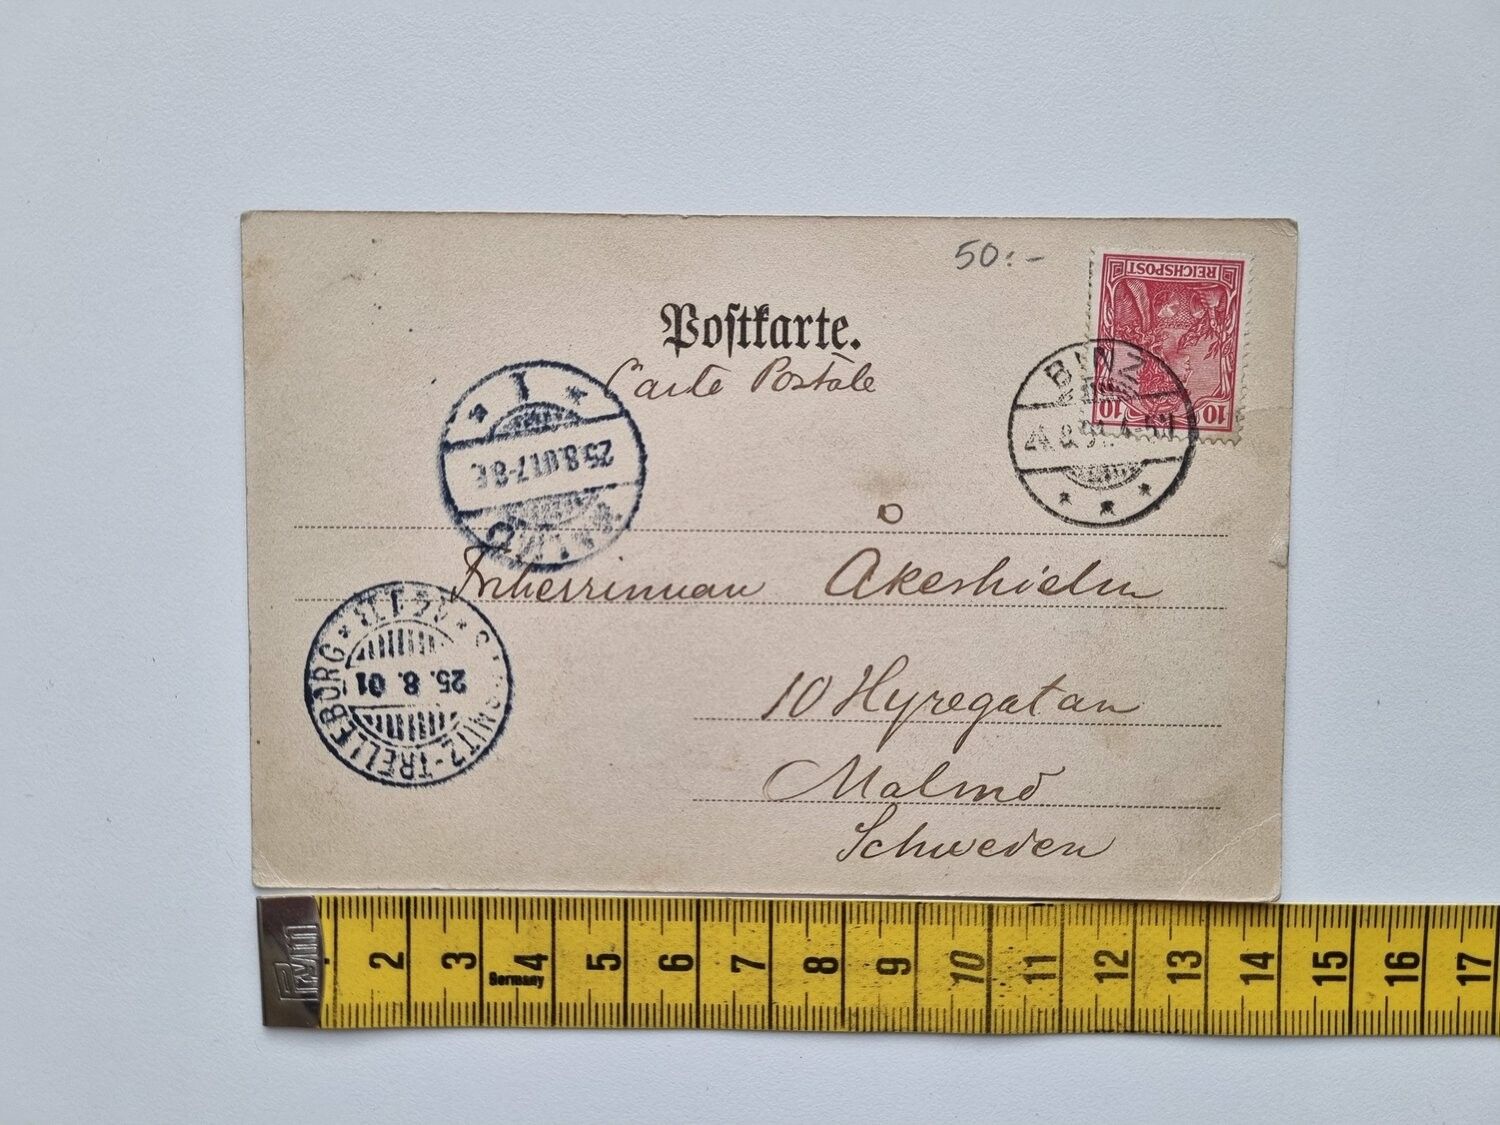 50:-
REICHSPOST
10 10
Postkarte.
Carte Postale
BINZ
1
25.8.01.7-8F
Friherrinnan Åkerhielm
SASSNITZ-TRELLEBORG
25. 8. 01
10 Hyregatan
Malmö
Schweden
Prym
2 3 4 5 6 7 8 9 10 11 12 13 14 15 16 17
Germany